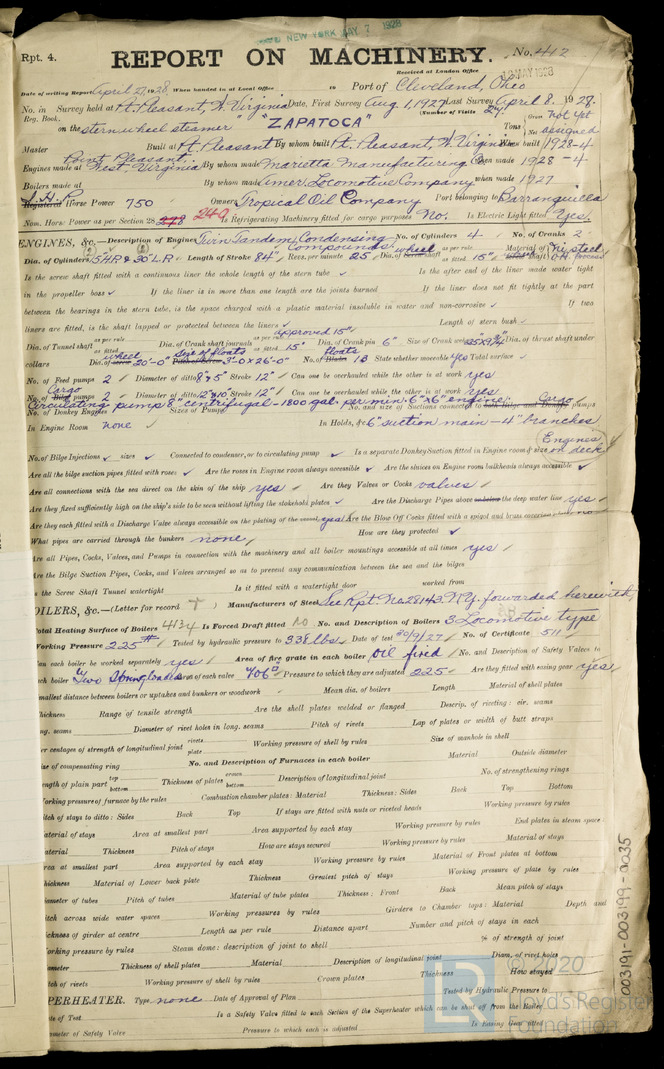 NEW YORK MAY 7 1928
Rpt. 4.
REPORT ON MACHINERY.
No. 412
Received at London Office
MAY 1928
Date of writing Report April 21, 1928. When handed in at Local Office to Port of Cleveland, Ohio
No. in Survey held at Pt. Pleasant, W. Virginia Date, First Survey Aug. 1, 1927 Last Survey April 8. 1928.
Reg. Book. (Number of Visits 24.)
on the sternwheel steamer "ZAPATOCA" Tons Gross not yet Net assigned
Master Built at Pt. Pleasant By whom built Pt. Pleasant, W. Virginia When built 1928-4
Engines made at Point Pleasant, West. Virginia By whom made Marietta Manufacturing Co when made 1928-4
Boilers made at By whom made Amer. Locomotive Company when made 1927
I.H.P. Registered Horse Power 750 Owners Tropical Oil Company Port belonging to Barranquilla
Nom. Horse Power as per Section 28 248 249 Is Refrigerating Machinery fitted for cargo purposes No. Is Electric Light fitted Yes.
ENGINES, &c.—Description of Engines Twin Tandem, Condensing Compounds No. of Cylinders 4 No. of Cranks 2
Dia. of Cylinders 15 H.P. & 30" L.R. Length of Stroke 84" Revs. per minute 25 Dia. of Screw shaft wheel as per rule as fitted 15" Material of screw shaft Ni steel O.H. process
Is the screw shaft fitted with a continuous liner the whole length of the stern tube Is the after end of the liner made water tight
in the propeller boss If the liner is in more than one length are the joints burned If the liner does not fit tightly at the part
between the bearings in the stern tube, is the space charged with a plastic material insoluble in water and non-corrosive If two
liners are fitted, is the shaft lapped or protected between the liners Length of stern bush
Dia. of Tunnel shaft as per rule as fitted Dia. of Crank shaft journals as per rule approved 15" as fitted 15" Dia. of Crank pin 6" Size of Crank webs Dia. of thrust shaft under
collars Dia. of screw wheel 20'-0" Pitch of Screw Size of floats 3'-0 x 26'-0" No. of Blades floats 13 State whether moveable yes Total surface
No. of Feed pumps 2 Diameter of ditto 8" & 5" Stroke 12" Can one be overhauled while the other is at work yes
No. of Bilge Cargo pumps 2 Diameter of ditto 12" & 10" Stroke 12" Can one be overhauled while the other is at work yes
Circulating pump 8" centrifugal - 1800 gal. per min. 6" x 6" engine
No. of Donkey Engines Sizes of Pumps No. and size of Suctions connected to both Bilge and Donkey Cargo pumps
In Engine Room none In Holds, &c. 6" suction main - 4" branches
No. of Bilge Injections sizes Connected to condenser, or to circulating pump Is a separate Donkey Suction fitted in Engine room & size Engines on deck
Are all the bilge suction pipes fitted with roses Are the roses in Engine room always accessible Are the sluices on Engine room bulkheads always accessible
Are all connections with the sea direct on the skin of the ship yes Are they Valves or Cocks valves
Are they fixed sufficiently high on the ship's side to be seen without lifting the stokehold plates Are the Discharge Pipes above or below the deep water line yes
Are they each fitted with a Discharge Valve always accessible on the plating of the vessel yes Are the Blow Off Cocks fitted with a spigot and brass covering plate no
What pipes are carried through the bunkers none How are they protected
Are all Pipes, Cocks, Valves, and Pumps in connection with the machinery and all boiler mountings accessible at all times yes
Are the Bilge Suction Pipes, Cocks, and Valves arranged so as to prevent any communication between the sea and the bilges
Is the Screw Shaft Tunnel watertight Is it fitted with a watertight door worked from
BOILERS, &c.—(Letter for record ) Manufacturers of Steel See Rpt. No. 28143. N.Y. forwarded herewith
Total Heating Surface of Boilers 4134 Is Forced Draft fitted no No. and Description of Boilers 3 Locomotive type
Working Pressure 225 # Tested by hydraulic pressure to 338 lbs. Date of test 20/9/27 No. of Certificate 511
Can each boiler be worked separately yes Area of fire grate in each boiler oil fired No. and Description of Safety Valves to
each boiler Two Spring loaded Area of each valve 7.06 □" Pressure to which they are adjusted 225 Are they fitted with easing gear yes
Smallest distance between boilers or uptakes and bunkers or woodwork Mean dia. of boilers Length Material of shell plates
Thickness Range of tensile strength Are the shell plates welded or flanged Descrip. of riveting: cir. seams
long. seams Diameter of rivet holes in long. seams Pitch of rivets Lap of plates or width of butt straps
Per centages of strength of longitudinal joint rivets plate Working pressure of shell by rules Size of manhole in shell
Size of compensating ring No. and Description of Furnaces in each boiler Material Outside diameter
Length of plain part top bottom Thickness of plates crown bottom Description of longitudinal joint No. of strengthening rings
Working pressure of furnace by the rules Combustion chamber plates: Material Thickness: Sides Back Top Bottom
Pitch of stays to ditto: Sides Back Top If stays are fitted with nuts or riveted heads Working pressure by rules
Material of stays Area at smallest part Area supported by each stay Working pressure by rules End plates in steam space:
Material Thickness Pitch of stays How are stays secured Working pressure by rules Material of stays
Area at smallest part Area supported by each stay Working pressure by rules Material of Front plates at bottom
Thickness Material of Lower back plate Thickness Greatest pitch of stays Working pressure of plate by rules
Diameter of tubes Pitch of tubes Material of tube plates Thickness: Front Back Mean pitch of stays
Pitch across wide water spaces Working pressures by rules Girders to Chamber tops: Material Depth and
thickness of girder at centre Length as per rule Distance apart Number and pitch of stays in each
Working pressure by rules Steam dome: description of joint to shell % of strength of joint
Diameter Thickness of shell plates Material Description of longitudinal joint Diam. of rivet holes
Pitch of rivets Working pressure of shell by rules Crown plates Thickness How stayed
SUPERHEATER. Type none Date of Approval of Plan Tested by Hydraulic Pressure to
Date of Test Is a Safety Valve fitted to each Section of the Superheater which can be shut off from the Boiler
Diameter of Safety Valve Pressure to which each is adjusted Is Easing Gear fitted
003191-003199-0035
© 2020
Lloyd's Register
Foundation